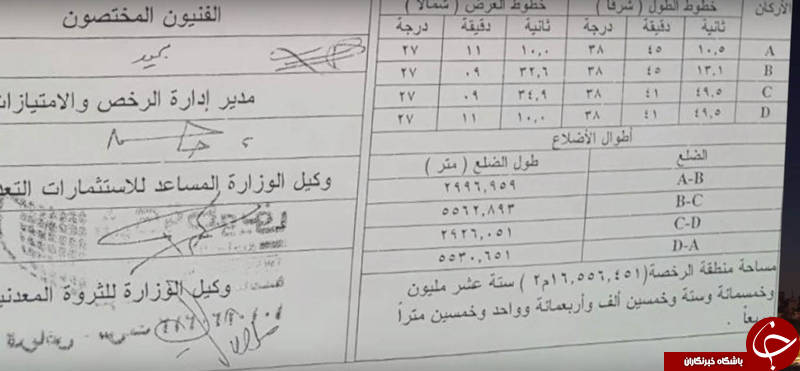 الأركان	خطوط الطول ( شرقاً )	خطوط العرض ( شمالاً )
ثانية	دقيقة	درجة	ثانية	دقيقة	درجة
A	١٠,٥	٤٥	٣٨	١٠,٠	١١	٢٧
B	١٣,١	٤٥	٣٨	٣٢,٦	٠٩	٢٧
C	٤٩,٥	٤١	٣٨	٣٤,٩	٠٩	٢٧
D	٤٩,٥	٤١	٣٨	١٠,٠	١١	٢٧
أطوال الأضلاع
الضلع	طول الضلع ( متر )
A-B	٢٩٩٦,٩٥٩
B-C	٥٥٦٢,٨٩٣
C-D	٢٩٢٦,٠٥١
D-A	٥٥٣٠,٦٥١
مساحة منطقة الرخصة(١٦,٥٥٦,٤٥١م٢ ) ستة عشر مليون
وخمسمائة وستة وخمسين ألف وأربعمائة وواحد وخمسين متراً
الفنيون المختصون
مدير إدارة الرخص والامتيازات
وكيل الوزارة المساعد للاستثمارات
وكيل الوزارة للثروة
باشگاه خبرنگاران